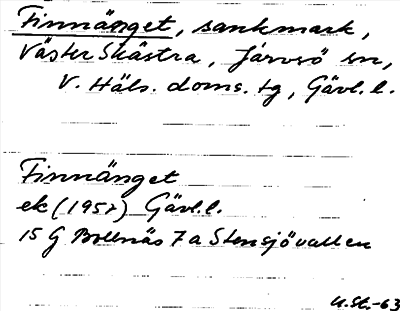 Finnänget, sankmark,
Väster Skästra, Järvsö sn,
V. Häls. doms. tg, Gävl. l.
Finnänget
ek (1957) Gävl. l.
15 G Bollnäs 7 a Stensjövallen
U.St.-63